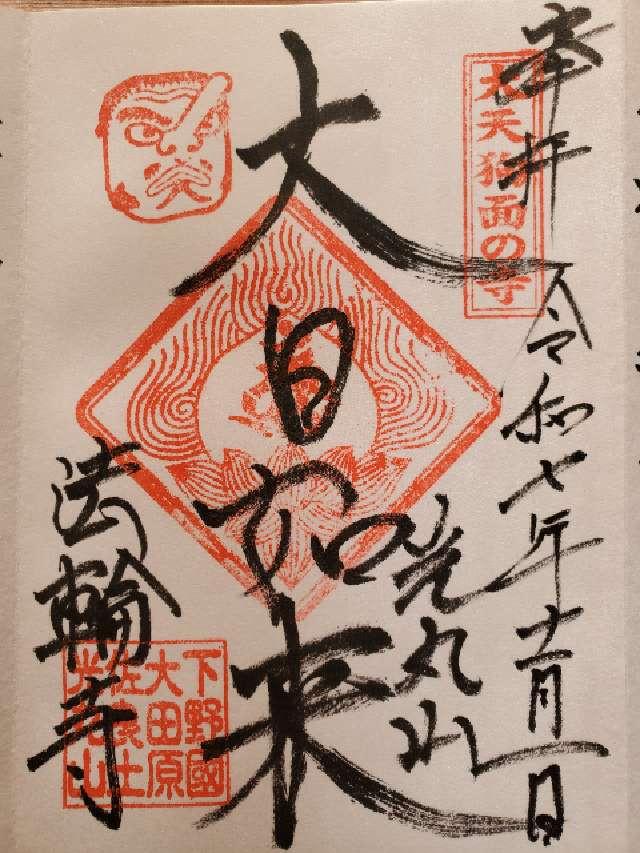 奉拝 令和七年十一月一日
大天狗面の寺
光丸山
大日如来
法輪寺
下野國
大田原
佐良土
光丸山